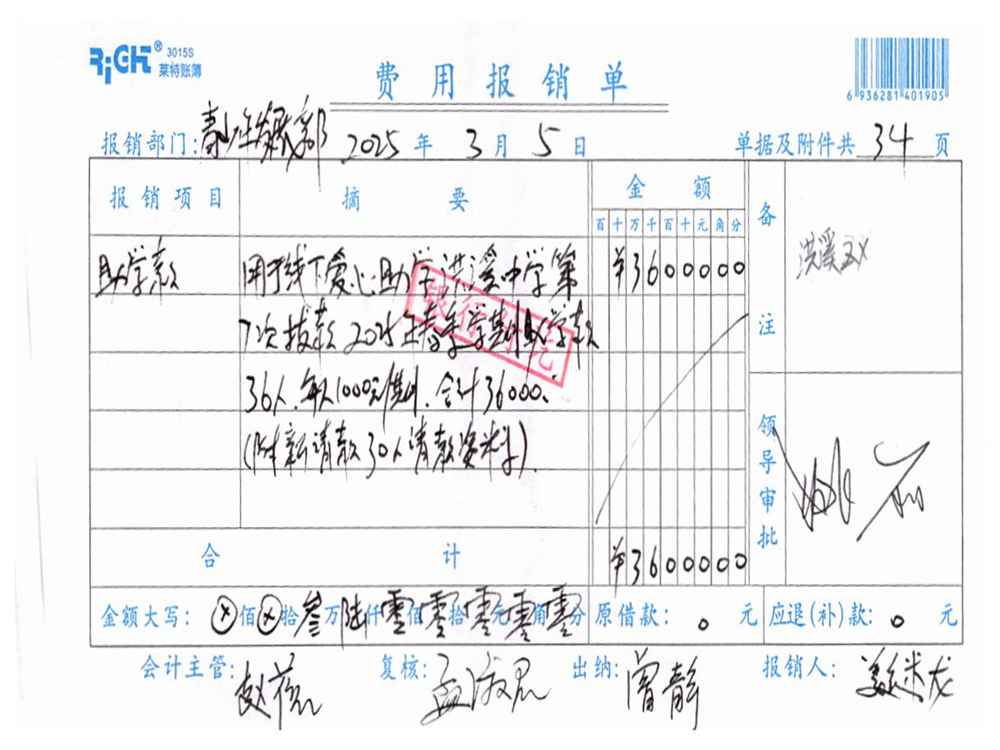 RiGHT® 3015S
莱特账簿
费用报销单
6 936281 401905
报销部门:青少年发展部 2025年3月5日 单据及附件共34页
报销项目 摘要 金额 备注
百十万千百十元角分
助学款 用于线下爱心助学洪溪中学第 ¥3600000 洪溪
7次拨款 2025年春季学期助学款
36人,每人1000元/期,合计36000.
(附新请款30人请款资料).
银行付讫
领导审批
合计 ¥3600000
金额大写: ⊗佰⊗拾叁万陆仟零佰零拾零元零角零分 原借款: 0 元 应退(补)款: 0 元
会计主管: 赵 复核: 孟淑君 出纳: 曾静 报销人: